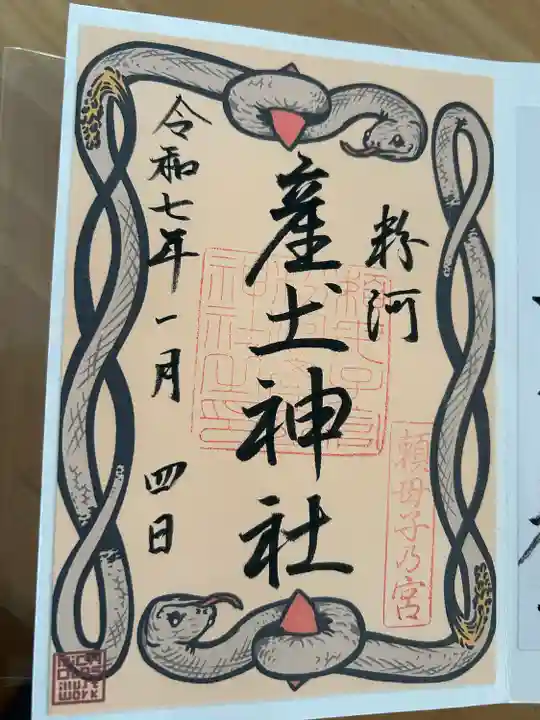 粉河
産土神社
頼母子乃宮
令和七年一月四日